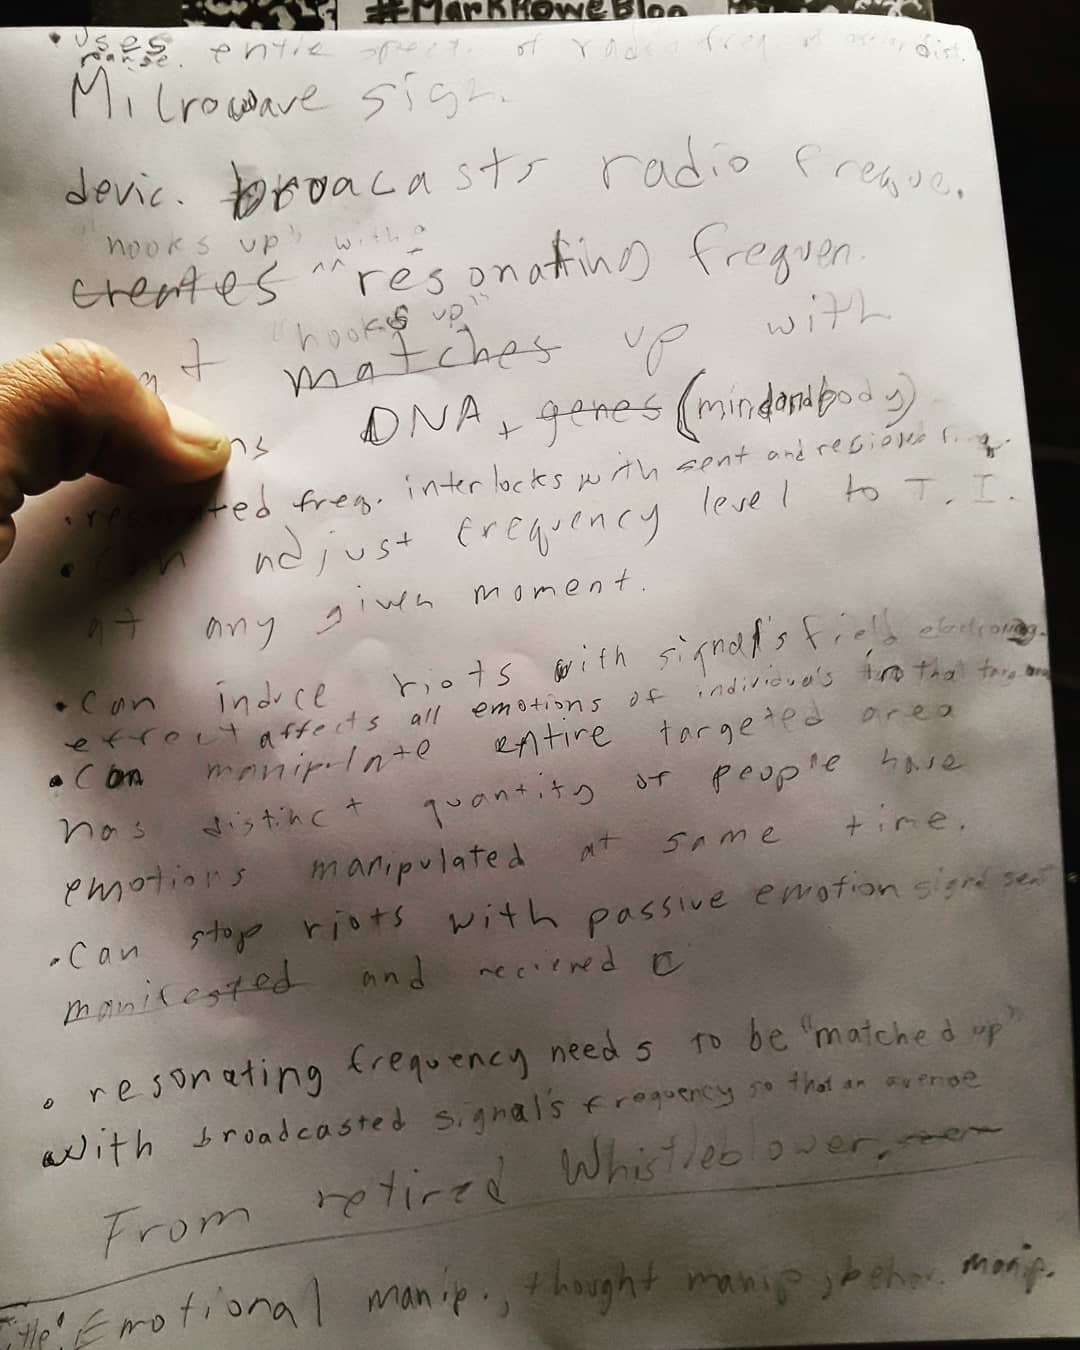 #MarkRoweBlog
• Uses entire spect. of radio freq. dist.
range.
Microwave sign.
devic. broacasts radio freque.
"hooks up" with a
creates ^^ resonating frequen.
"hooks up"
matches up with
DNA + genes (mind and body)
freq. interlocks with sent and recieved
• Can adjust frequency level to T.I.
at any given moment.
• Can induce riots with signal's field
effect affects all emotions of individuals
• Can manipulate entire targeted area
has distinct quantity of people have
emotions manipulated at same time.
• Can stop riots with passive emotion signal sent
manifested and recieved
• resonating frequency needs to be "matched up"
with broadcasted signal's frequency so that an
From retired Whistleblower.
Title: Emotional manip., thought manip., behav. manip.